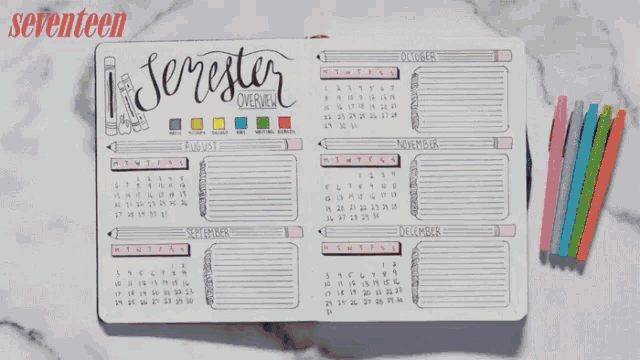 seventeen
Semester
OVERVIEW
MATH HISTORY ART WRITING
AUGUST
M T W T F S S
1 2 3 4 5
6 7 8 9 10 11 12
13 14 15 16 17 18 19
20 21 22 23 24 25 26
27 28 29 30 31
SEPTEMBER
M T W T F S S
1 2
3 4 5 6 7 8 9
10 11 12 13 14 15 16
17 18 19 20 21 22 23
24 25 26 27 28 29 30
OCTOBER
M T W T F S S
1 2 3 4 5 6 7
8 9 10 11 12 13 14
15 16 17 18 19 20 21
22 23 24 25 26 27 28
29 30 31
NOVEMBER
M T W T F S S
1 2 3 4
5 6 7 8 9 10 11
12 13 14 15 16 17 18
19 20 21 22 23 24 25
26 27 28 29 30
DECEMBER
M T W T F S S
1 2
3 4 5 6 7 8 9
10 11 12 13 14 15 16
17 18 19 20 21 22 23
24 25 26 27 28 29 30
31